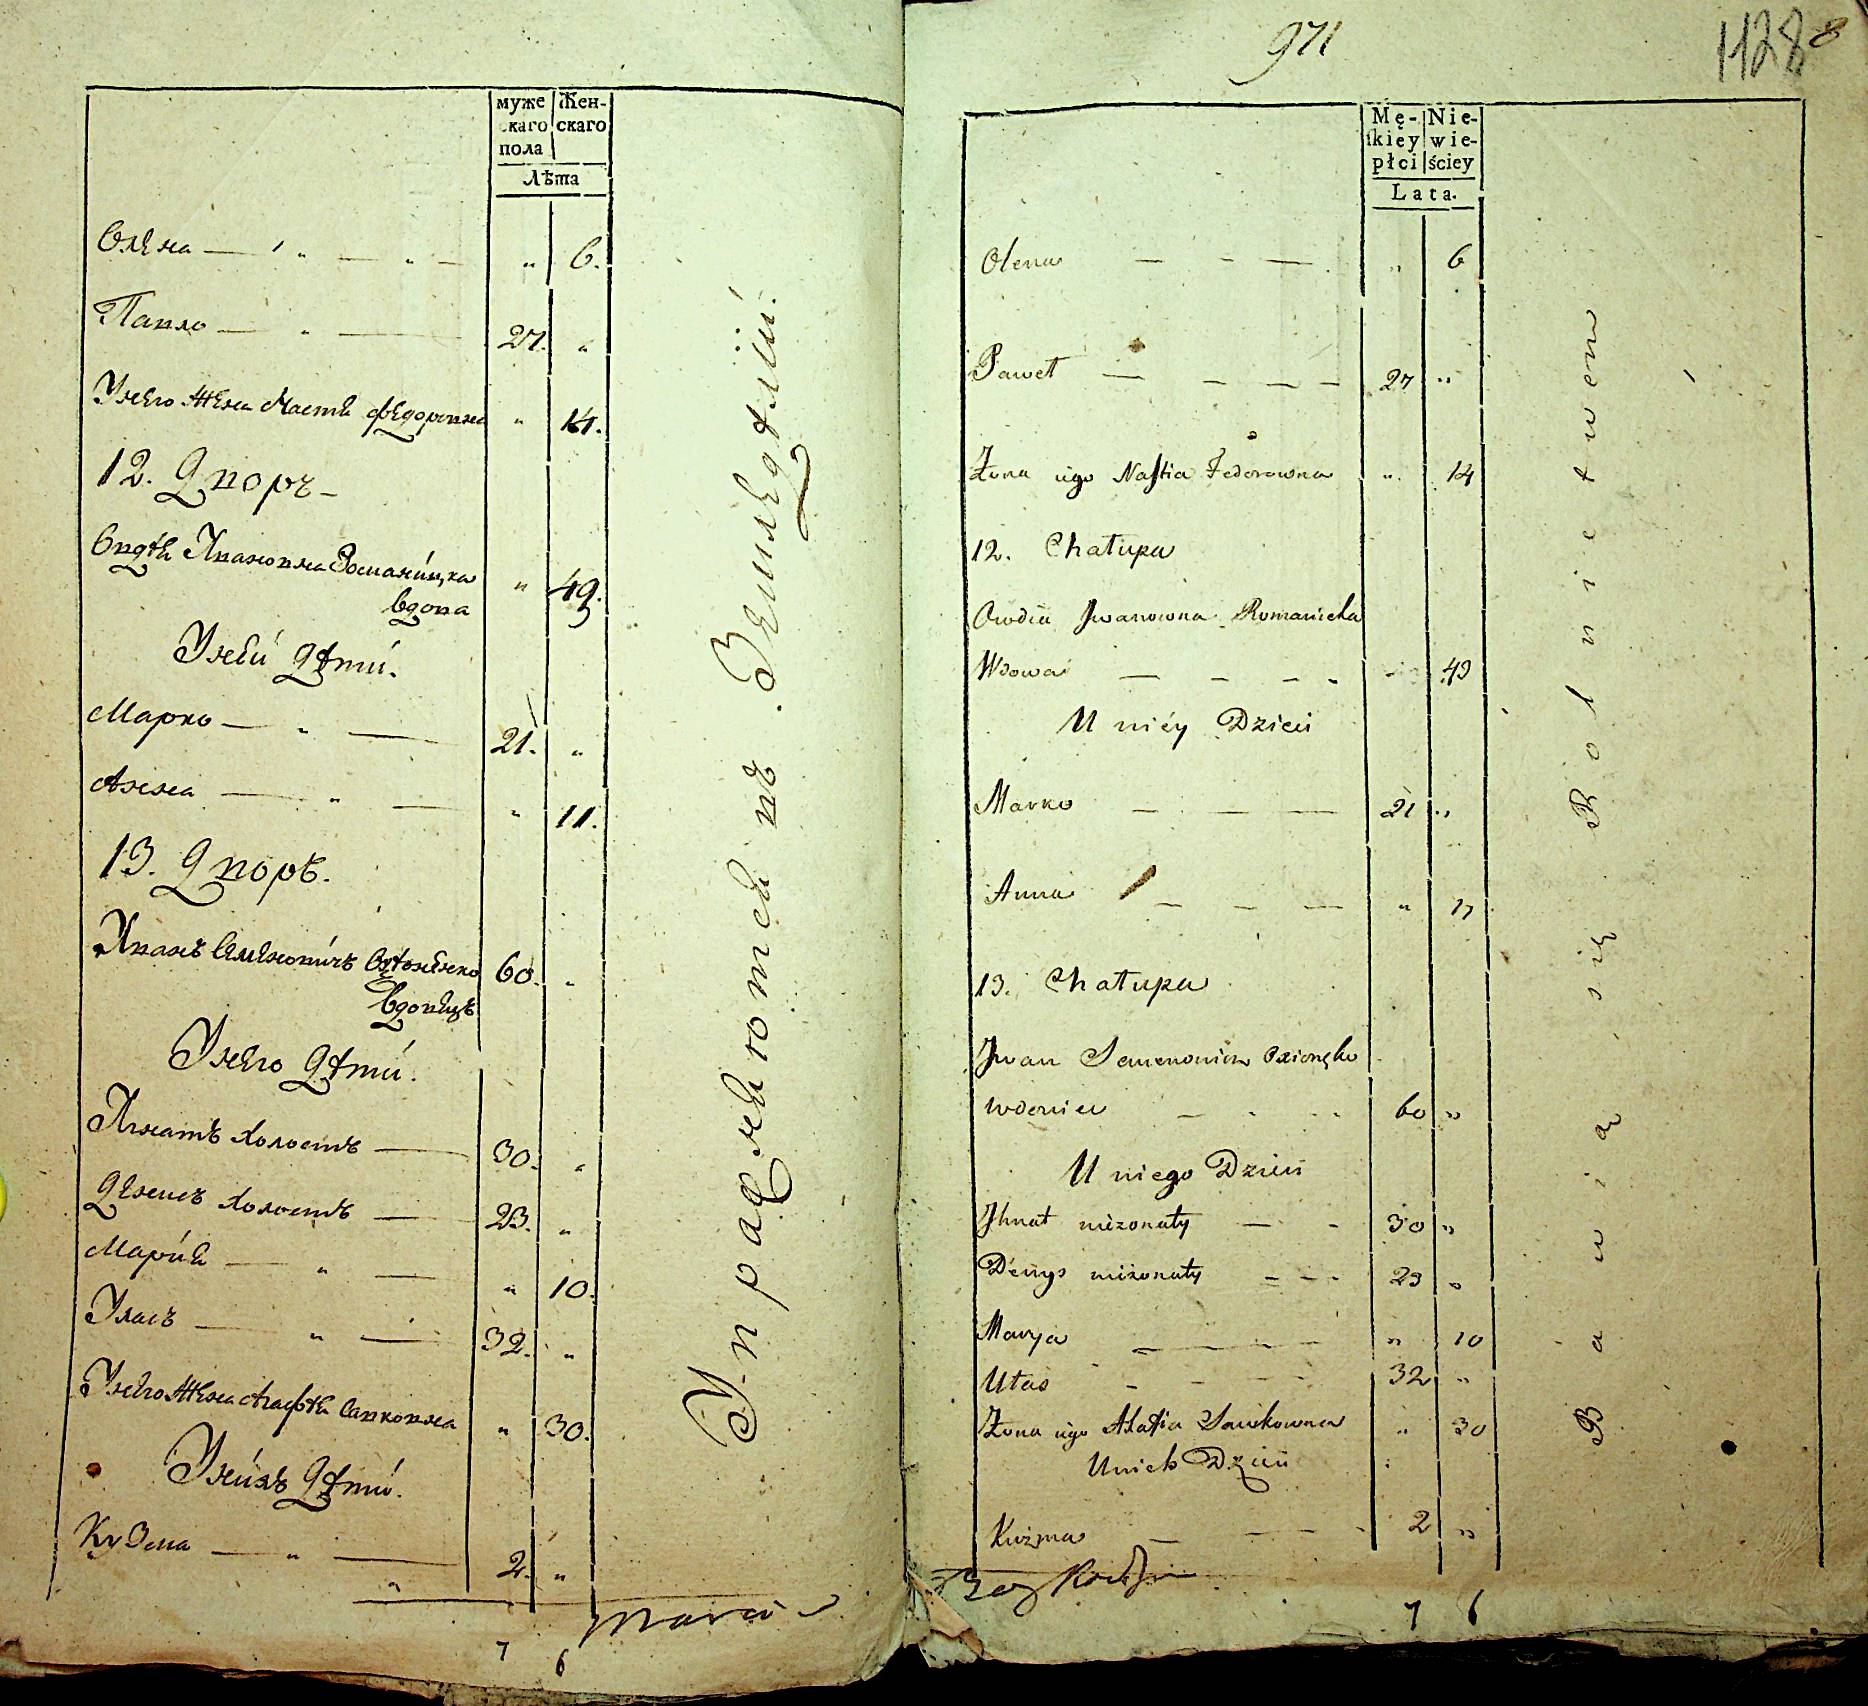 муже
скаго
пола
Жен-
скаго
Лѣта
Олена " " " 6.
Павло " 27. "
Унего Жена Настя Федоровна " 14.
12. Дворъ
Овдѣя Ивановна Романицка
Вдова " 49.
Унеи Дѣти.
Марко " 21. "
Анна " " 11.
13. Дворъ.
Иванъ Семеновичъ 60. "
Вдовецъ
Унего Дѣти.
Игнатъ Холостъ 30. "
Денисъ Холостъ 23. "
Марія " " 10.
Уласъ " 32. "
Унего Жена Агафія Савковна " 30.
Унихъ Дѣти.
Кузма " 2. "
7 6
Упражняются въ Земледѣліи.
971
1128
8
Mę-
skiey
płci
Nie-
wie-
ściey
Lata.
Olena " 6
Paweł 27 "
Żona iego Nastia Fedorowna " 14
12. Chałupa
Owdia Jwanowna Romanicka
Wdowa 49
U niéy Dzieci
Marko 21 "
Anna " 11
13. Chałupa
Jwan Semenowicz
wdowiec 60 "
U niego Dzieci
Jhnat nieżonaty 30 "
Denys nieżonaty 23 "
Marya " 10
Ułas 32 "
Żona iego Ahafia Sawkowna " 30
U nich Dzieci
Kuźma 2 "
7 6
Bawią się Rolnictwem